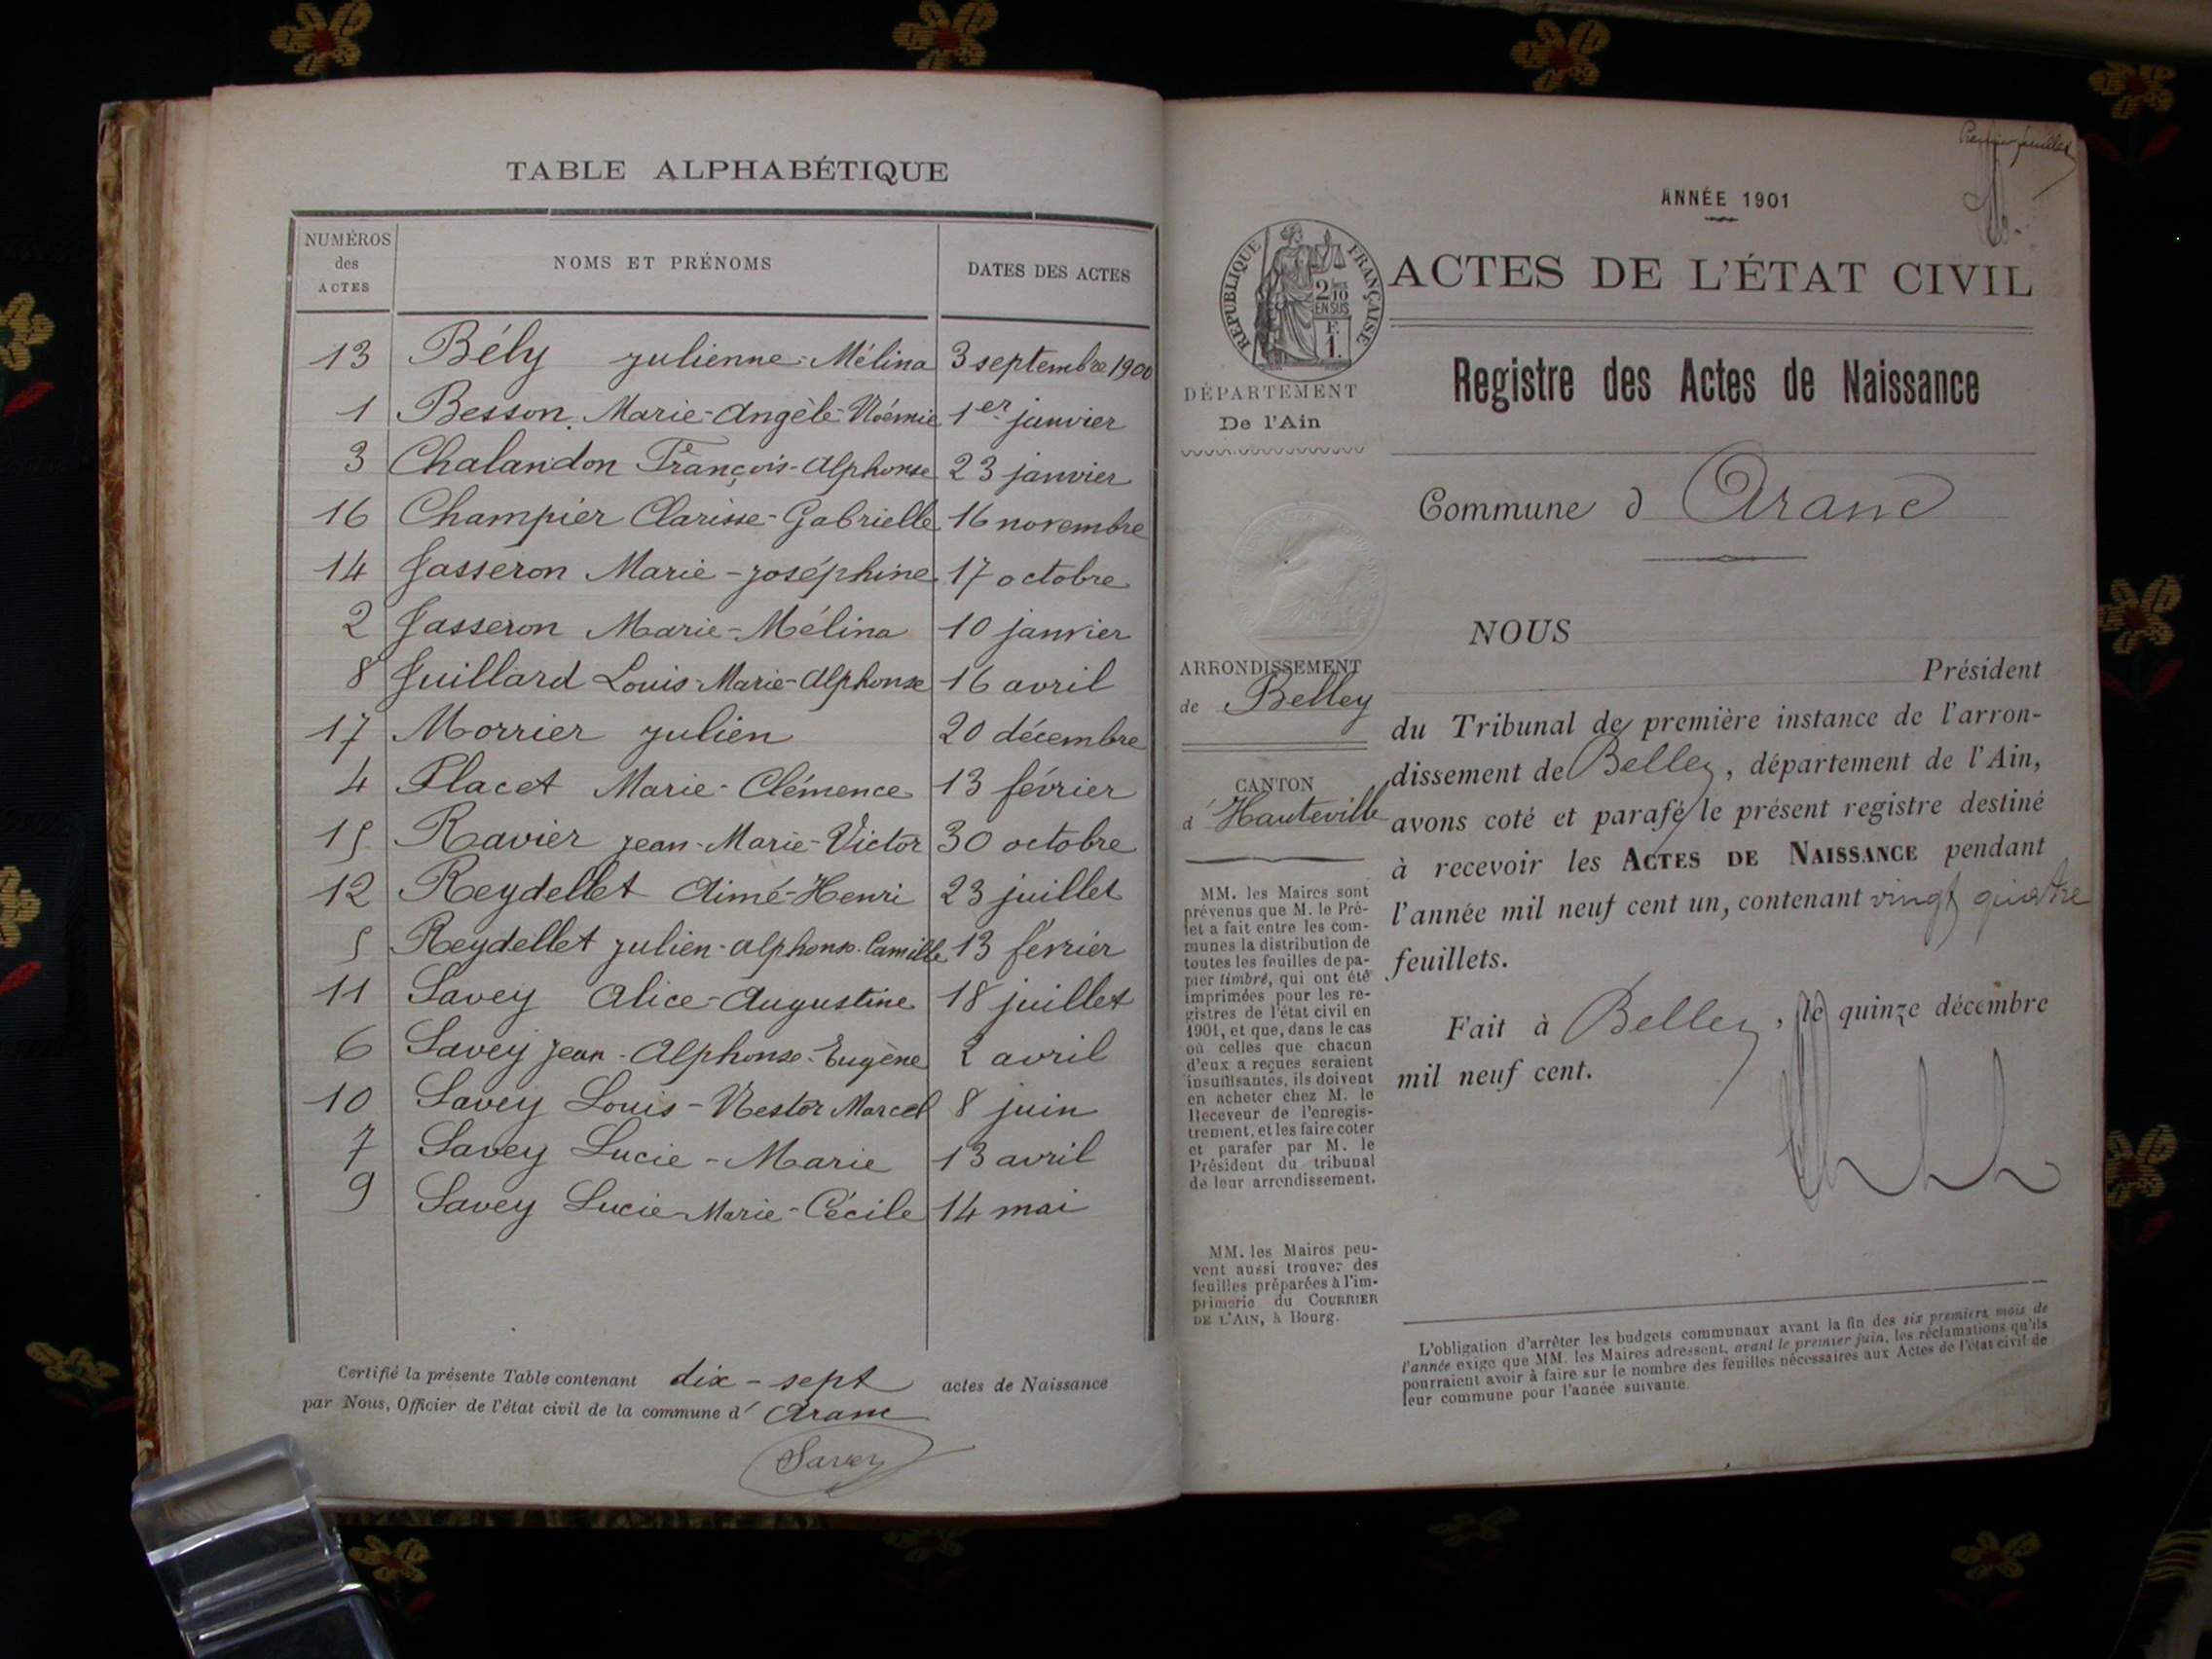 TABLE ALPHABÉTIQUE
NUMÉROS des ACTES NOMS ET PRÉNOMS DATES DES ACTES
13 Bély Julienne-Mélina 3 septembre 1900
1 Besson Marie-Angèle-Noémie 1er janvier
3 Chalandon François-Alphonse 23 janvier
16 Champier Clarisse-Gabrielle 16 novembre
14 Jasseron Marie-Joséphine 17 octobre
2 Jasseron Marie-Mélina 10 janvier
8 Juillard Louis-Marie-Alphonse 16 avril
17 Morrier Julien 20 décembre
4 Placet Marie-Clémence 13 février
15 Ravier Jean-Marie-Victor 30 octobre
12 Reydellet Aimé-Henri 23 juillet
5 Reydellet Julien-Alphonse-Camille 13 février
11 Savey Alice-Augustine 18 juillet
6 Savey Jean-Alphonse-Eugène 2 avril
10 Savey Louis-Nestor Marcel 8 juin
7 Savey Lucie-Marie 13 avril
9 Savey Lucie-Marie-Cécile 14 mai
Certifié la présente Table contenant dix-sept actes de Naissance
par Nous, Officier de l'état civil de la commune d' Aranc
Savey
Premier feuillet
ANNÉE 1901
RÉPUBLIQUE FRANÇAISE
2/10
EN SUS
F.
1.
ACTES DE L'ÉTAT CIVIL
DÉPARTEMENT
De l'Ain
Registre des Actes de Naissance
Commune d Aranc
ARRONDISSEMENT
de Belley
CANTON
d' Hauteville
MM. les Maires sont
prévenus que M. le Pré-
fet a fait entre les com-
munes la distribution de
toutes les feuilles de pa-
pier timbré, qui ont été
imprimées pour les re-
gistres de l'état civil en
1901, et que, dans le cas
où celles que chacun
d'eux a reçues seraient
insuffisantes, ils doivent
en acheter chez M. le
Receveur de l'enregis-
trement, et les faire coter
et parafer par M. le
Président du tribunal
de leur arrondissement.
MM. les Maires peu-
vent aussi trouver des
feuilles préparées à l'im-
primerie du COURRIER
DE L'AIN, à Bourg.
NOUS
Président
du Tribunal de première instance de l'arron-
dissement de Belley, département de l'Ain,
avons coté et parafé le présent registre destiné
à recevoir les ACTES DE NAISSANCE pendant
l'année mil neuf cent un, contenant vingt quatre
feuillets.
Fait à Belley, le quinze décembre
mil neuf cent.
L'obligation d'arrêter les budgets communaux avant la fin des six premiers mois de
l'année exige que MM. les Maires adressent, avant le premier juin, les réclamations qu'ils
pourraient avoir à faire sur le nombre des feuilles nécessaires aux Actes de l'état civil de
leur commune pour l'année suivante.